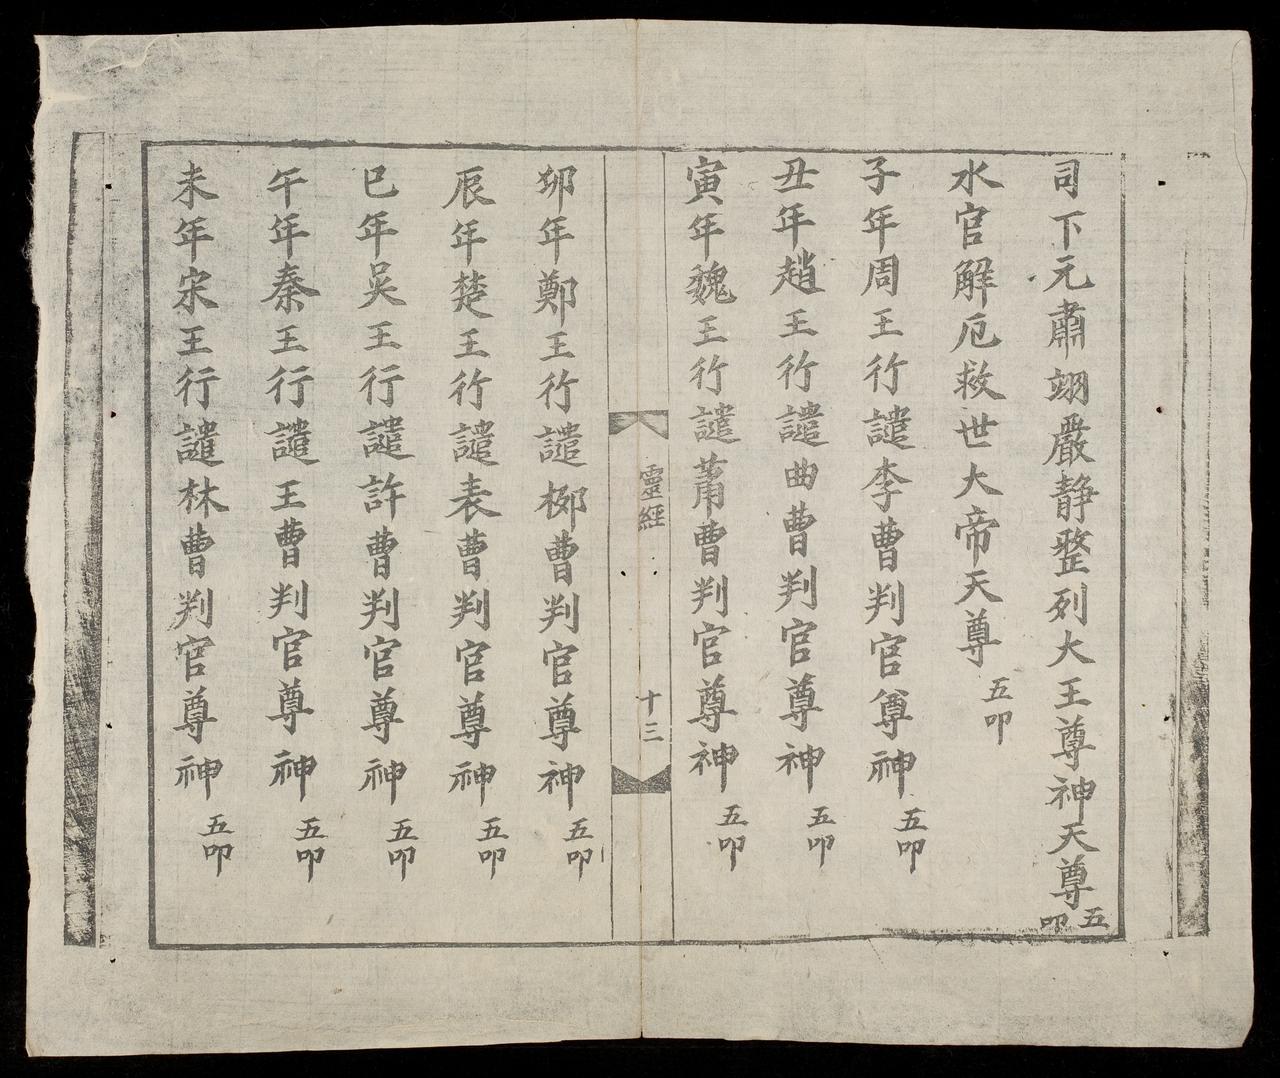 司下元肅翊嚴静整列大王尊神天尊 五叩
水官解厄救世大帝天尊 五叩
子年周王行譴李曹判官尊神 五叩
丑年趙王行譴曲曹判官尊神 五叩
寅年魏王行譴萧曹判官尊神 五叩
靈經 十三
卯年鄭王行譴柳曹判官尊神 五叩
辰年楚王行譴表曹判官尊神 五叩
巳年吳王行譴許曹判官尊神 五叩
午年秦王行譴王曹判官尊神 五叩
未年宋王行譴林曹判官尊神 五叩